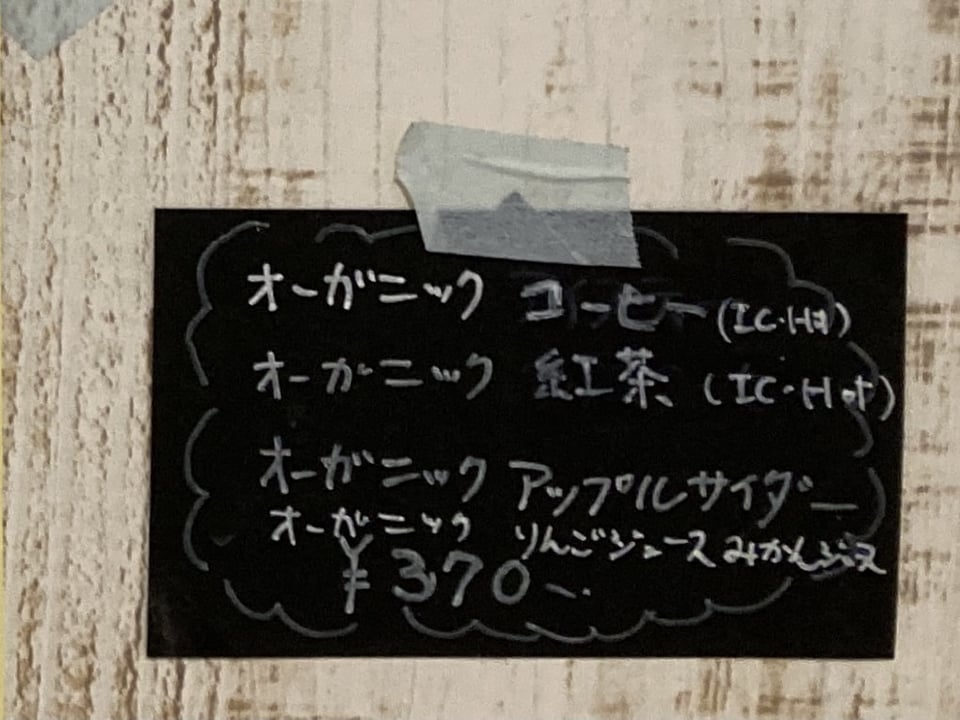 オーガニック コーヒー (IC・Hot)
オーガニック 紅茶 (IC・Hot)
オーガニック アップルサイダー
オーガニック りんごジュース みかんジュース
¥370〜